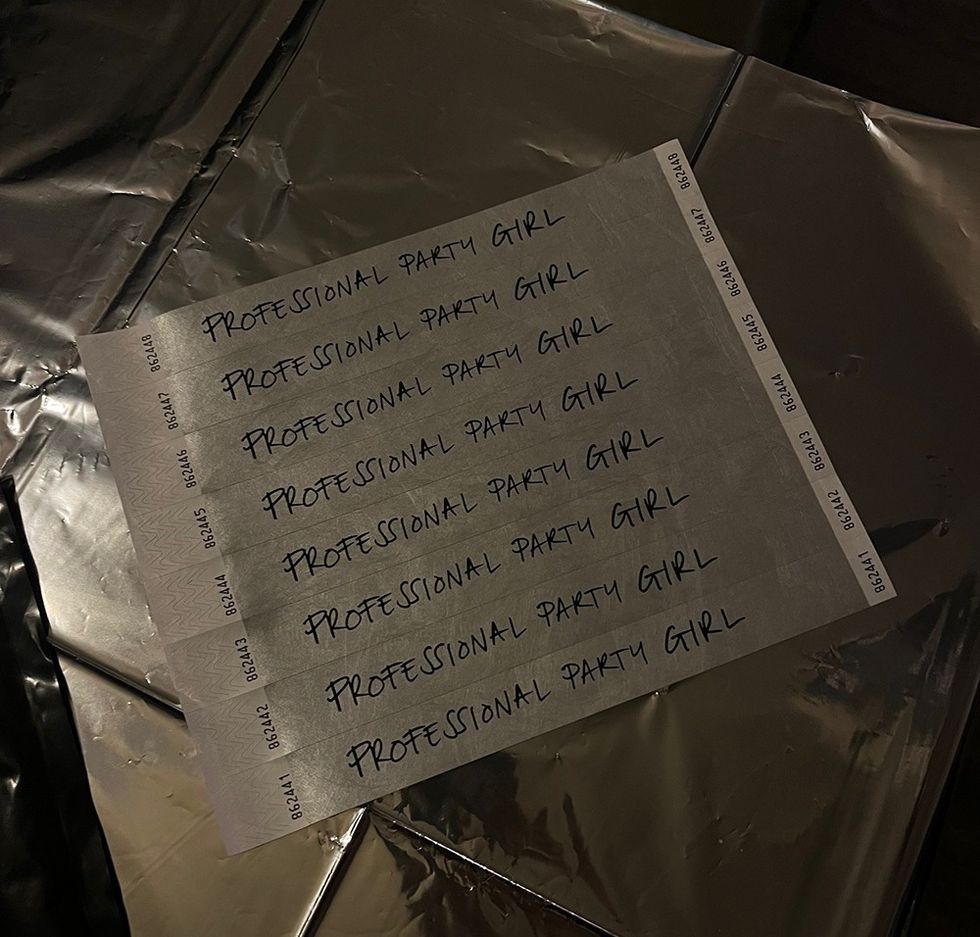 862448 PROFESSIONAL PARTY GIRL 862448
862447 PROFESSIONAL PARTY GIRL 862447
862446 PROFESSIONAL PARTY GIRL 862446
862445 PROFESSIONAL PARTY GIRL 862445
862444 PROFESSIONAL PARTY GIRL 862444
862443 PROFESSIONAL PARTY GIRL 862443
862442 PROFESSIONAL PARTY GIRL 862442
862441 PROFESSIONAL PARTY GIRL 862441